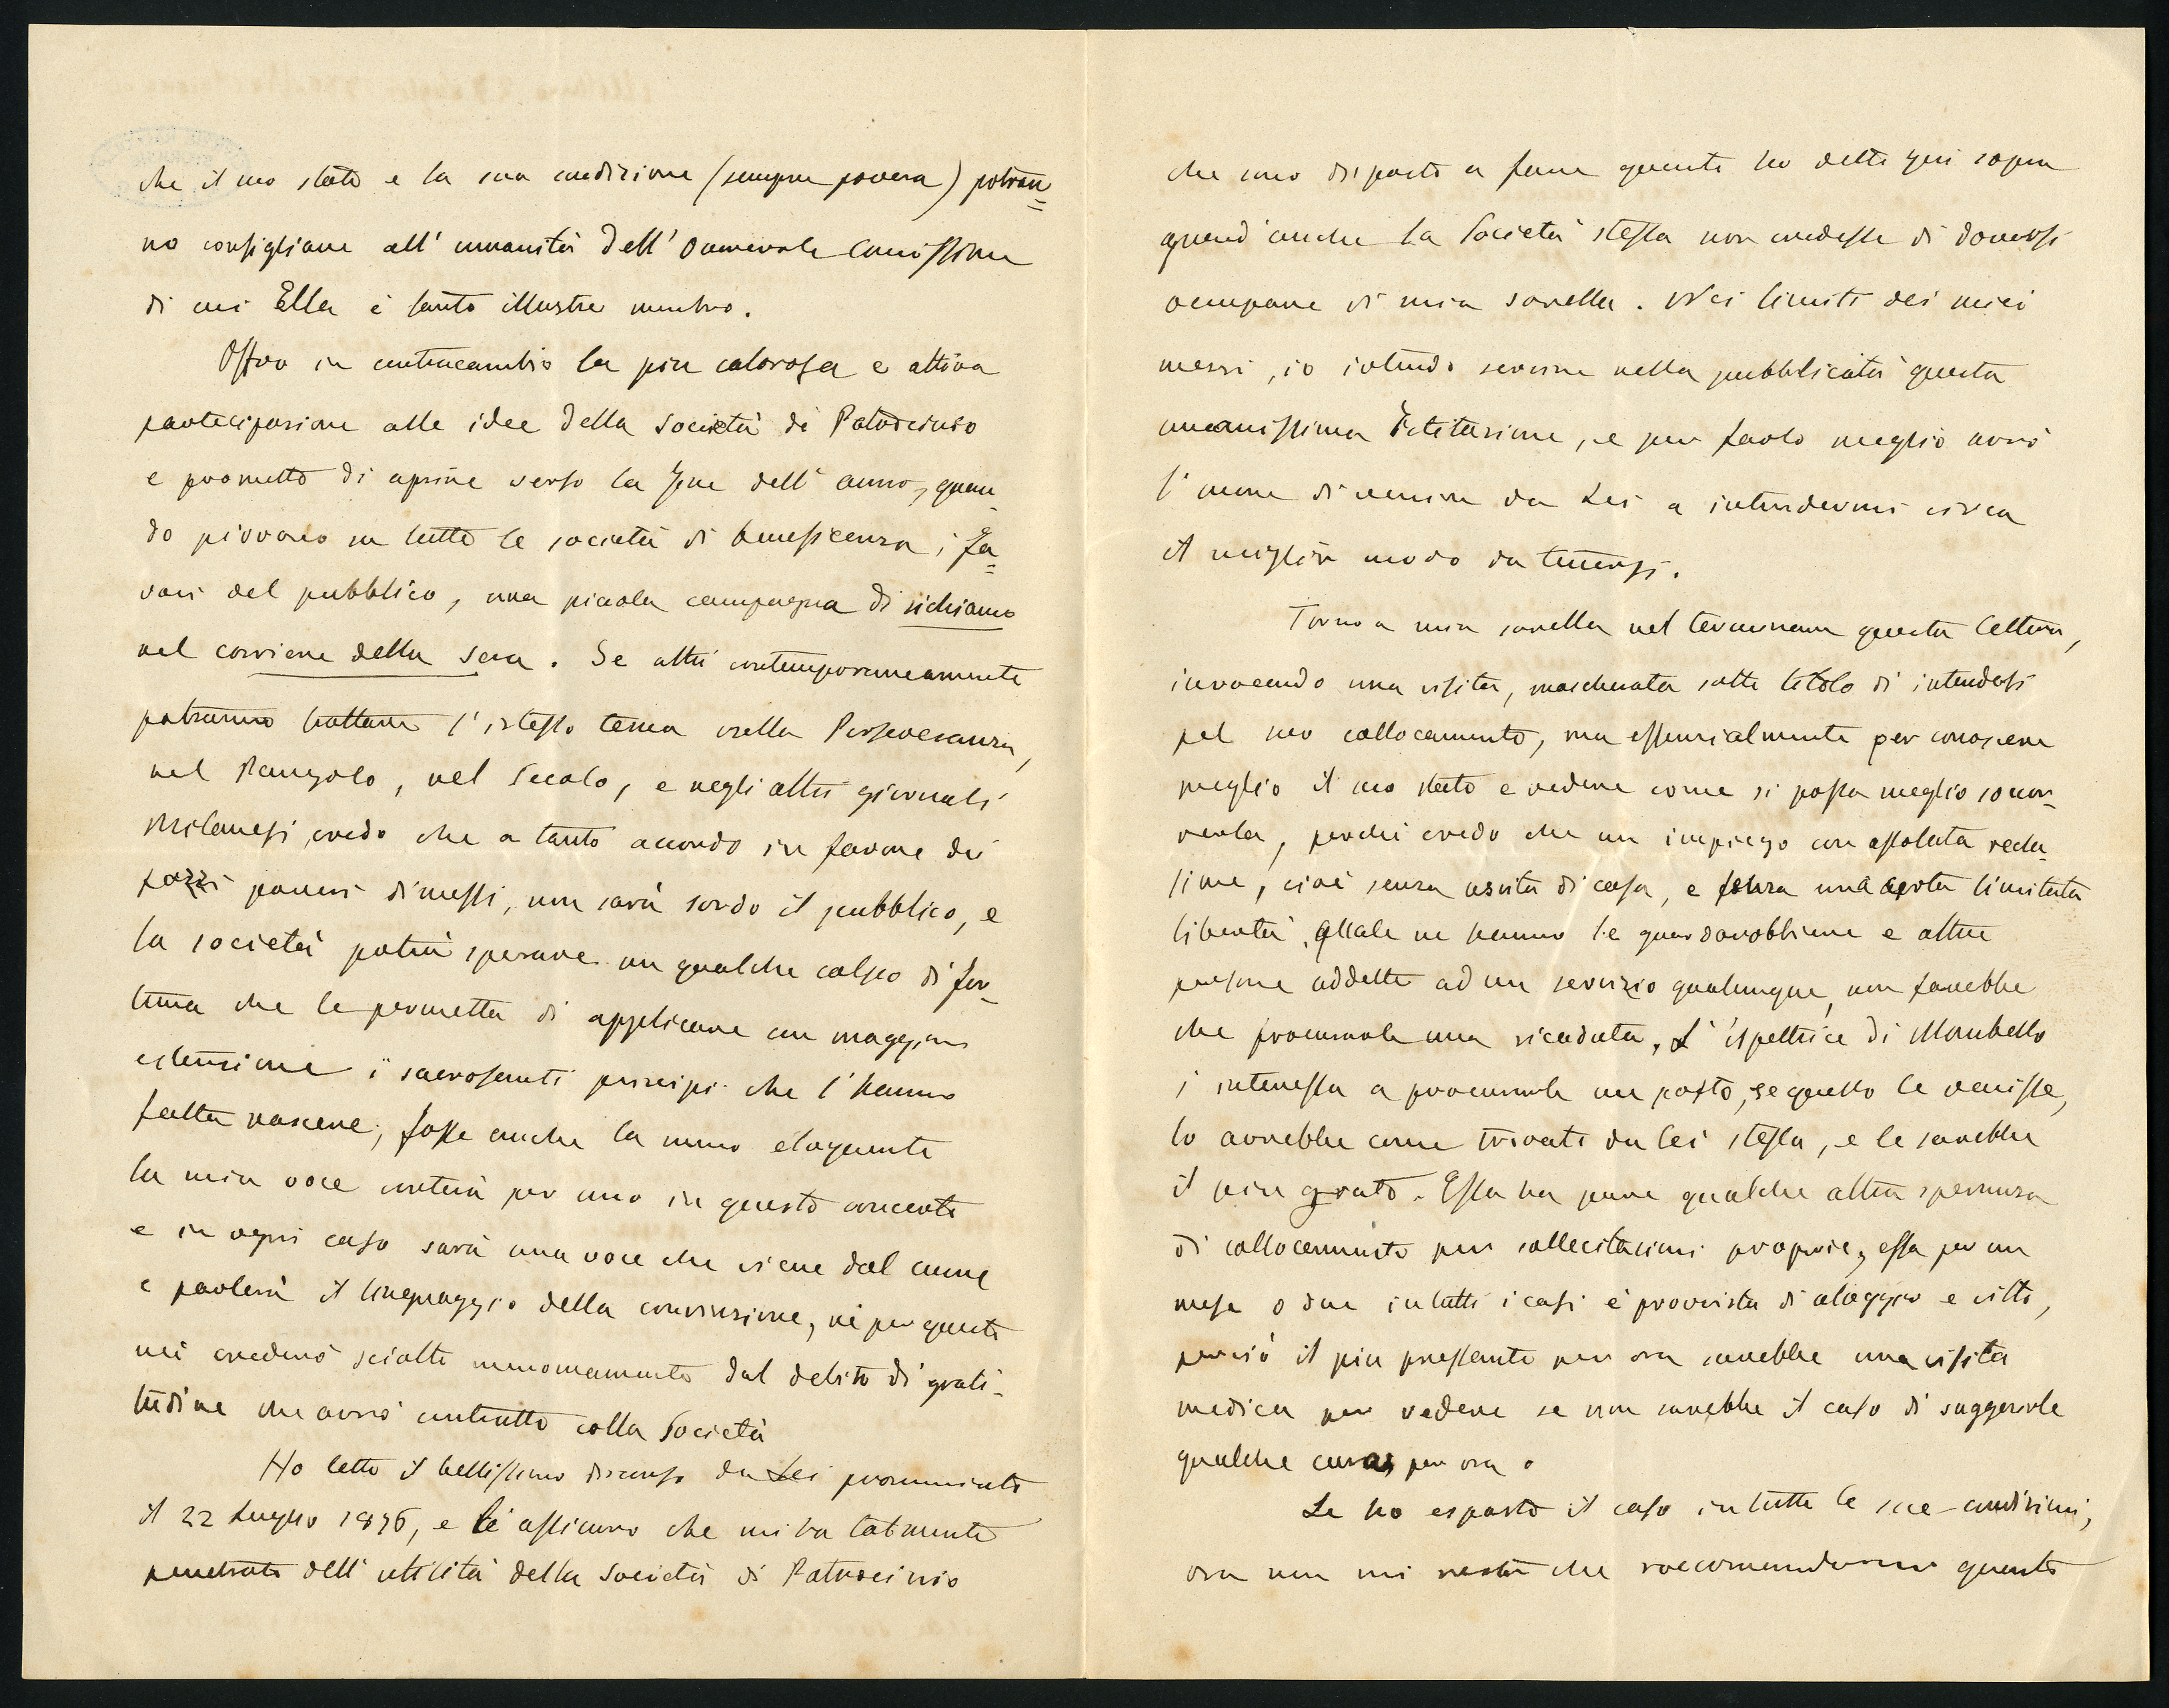 che il suo stato e la sua condizione (sempre povera) potran=
no consigliare all' umanità dell' onorevole Comissione
di cui Ella è tanto illustre membro.
Offro in contraccambio la più calorosa e attiva
partecipazione alle idee della Società di Patrocinio
e prometto di aprire verso la fine dell' anno, quan-
do piovono su tutte le società di beneficenza i fa=
vori del pubblico, una piccola campagna di richiamo
nel corriere della sera. Se altri contemporaneamente
potranno trattare l'istesso tema nella Perseveranza,
nel Pungolo, nel Secolo, e negli altri giornali
Milanesi, credo che a tanto accordo in favore dei
pazzi poveri dimessi, non sarà sordo il pubblico, e
la società potrà sperare un qualche colpo di for-
tuna che le permetta di applicare con maggiore
estensione i sacrosanti principi che l'hanno
fatta nascere; fosse anche la meno eloquente
la mia voce conterà per uno in questo concerto
e in ogni caso sarà una voce che viene dal cuore
e parlerà il linguaggio della convinzione, nè per questo
mi crederò sciolto menomamente dal debito di grati-
tudine che avrò contratto colla Società
Ho letto il bellissimo discorso da Lei pronunciato
il 22 Luglio 1876, e Le assicuro che mi ha talmente
penetrato dell' utilità della Società di Patrocinio
che sono disposto a fare quanto ho detto qui sopra
quand'anche la Società stessa non credesse di doversi
occupare di mia sorella. Nei limiti dei miei
mezzi, io intendo servire nella pubblicità questa
umanissima Istituzione, e per farlo meglio avrò
l'onore di venire da Lei a intendermi circa
il miglior modo da tenersi.
Torno a mia sorella nel terminare questa lettera,
invocando una visita, mascherata sotto titolo di intendersi
pel suo collocamento, ma essenzialmente per conoscere
meglio il suo stato e vedere come si possa meglio soccor-
rerla, perchè credo che un impiego con assoluta reclu-
sione, cioè senza uscita di casa, e senza una certa limitata
libertà, quale ne hanno le guardarobbiere e altre
persone addette ad un servizio qualunque, non farebbe
che procurarle una ricaduta. L'ispettrice di Mombello
s'interessa a procurarle un posto, se questo le venisse,
lo avrebbe come trovato da lei stessa, e le sarebbe
il più grato. Essa ha pure qualche altra speranza
di collocamento per sollecitazioni proprie, essa per un
mese o due in tutti i casi è provvista di aloggio e vitto,
perciò il più pressante per ora sarebbe una visita
medica per vedere se non sarebbe il caso di suggerirle
qualche cura, per ora.
Le ho esposto il caso in tutte le sue condizioni,
ora non mi resta che raccomandarmi quanto